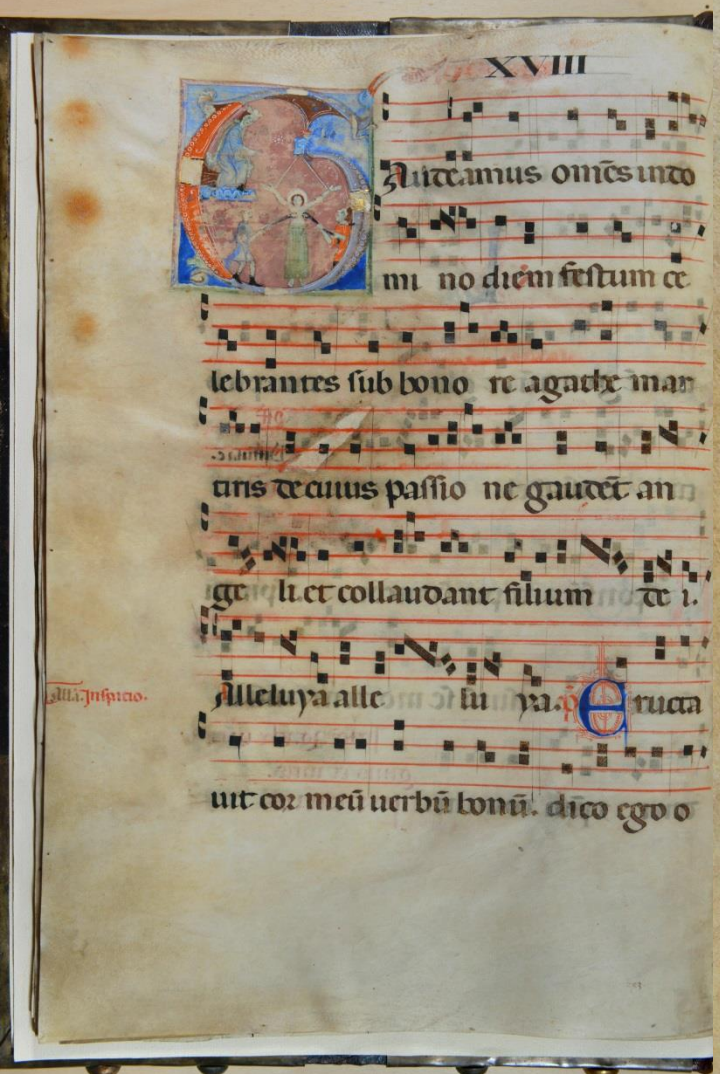 XVIII
Gaudeamus om̄es in do
mi no diem festum ce
lebrantes sub hono re agathe mar
tiris de cuius passio ne gaudēt an
ge li et collaudant filium de i.
Alleluya alle lu ya. p̄s Eructa
uit cor meū uerbū bonū. dico ego o